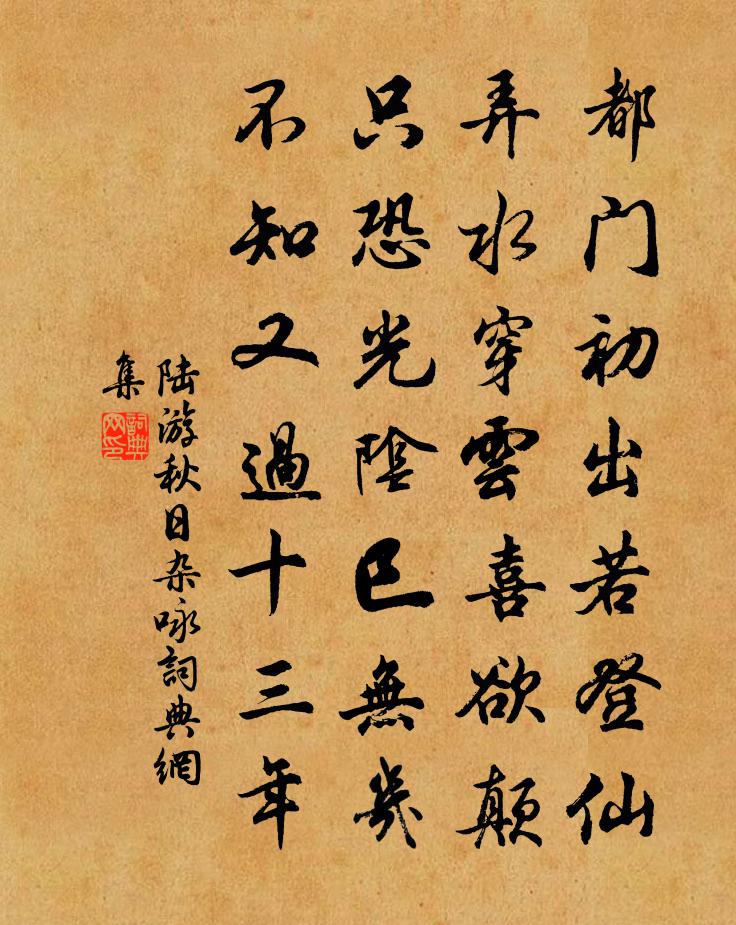 都门初出若登仙
弄水穿雲喜欲颠
只恐光陰已無幾
不知又過十三年
陆游秋日杂咏詞典網
集
詞典网印